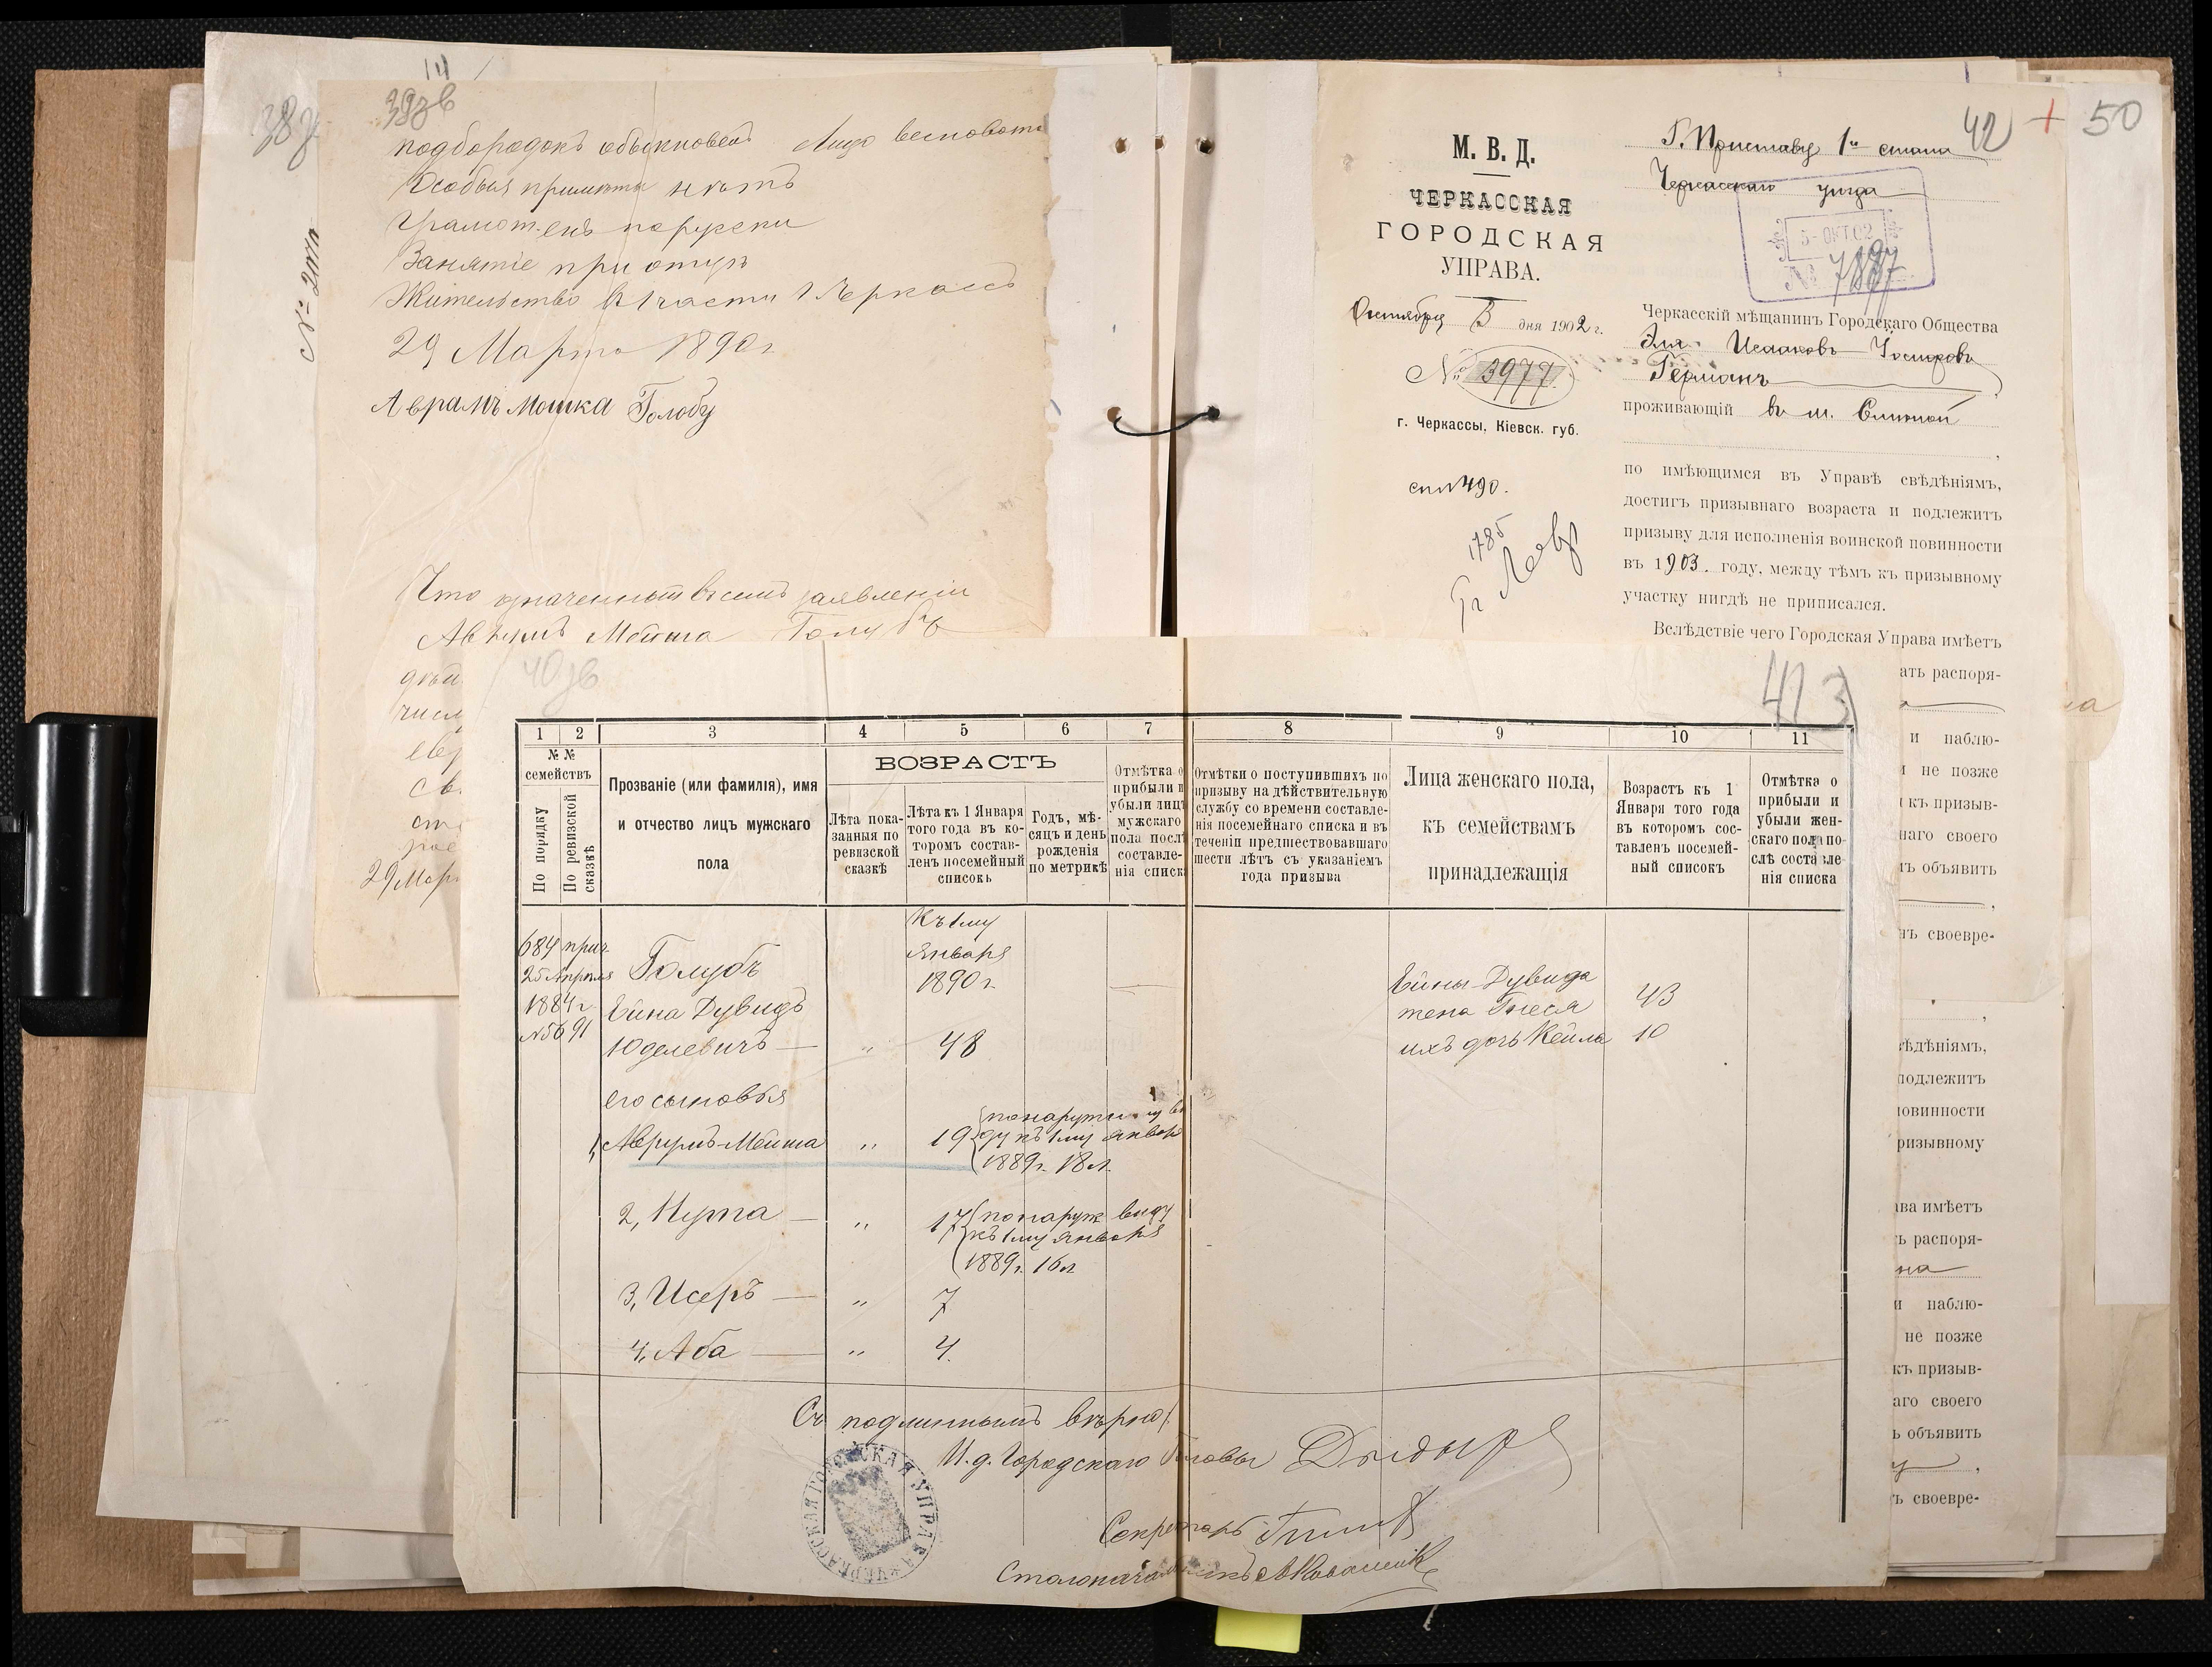 38
39зв
подбородокъ обыкновен. Лицо весноват
Особыя приметы нѣтъ
Грамотенъ порусски
Занятіе при отцѣ
Жительство в 1 части г Черкассъ
29 Марта 1890 г.
Аврамъ Мошка Голобу
Что означенный въ семъ заявленіи
Аврумъ Мойша Голубъ
29 Мар
42 + 50
М. В. Д.
ЧЕРКАССКАЯ
ГОРОДСКАЯ
УПРАВА.
Октября 3 дня 1902 г.
№ 3977.
г. Черкассы, Кіевск. губ.
сп. № 490.
1785
Г. Приставу 1го стана
Черкасскаго уезда
5 - ОКТ. 02
№ 7897
Черкасскій мѣщанинъ Городскаго Общества
Эля Ицковъ
Германъ
проживающій въ м.
по имѣющимся въ Управѣ свѣдѣніямъ,
достигъ призывнаго возраста и подлежитъ
призыву для исполненія воинской повинности
въ 1903. году, между тѣмъ къ призывному
участку нигдѣ не приписался.
Вслѣдствіе чего Городская Управа имѣетъ
ать распоря-
и наблю-
и не позже
къ призыв-
наго своего
ъ объявить
ъ своевре-
вѣдѣніямъ,
подлежитъ
повинности
ризывному
ава имѣетъ
ъ распоря-
на
и наблю-
не позже
къ призыв-
аго своего
ь объявить
ъ своевре-
40зв
413
1 2 3 4 5 6 7 8 9 10 11
№ №
семействъ
По порядку
По ревизской сказкѣ
Прозваніе (или фамилія), имя
и отчество лицъ мужскаго
пола
ВОЗРАСТЪ
Лѣта пока-
занныя по
ревизской
сказкѣ
Лѣта къ 1 Января
того года въ ко-
торомъ состав-
ленъ посемейный
списокъ
Годъ, мѣ-
сяцъ и день
рожденія
по метрикѣ
Отмѣтка о
прибыли и
убыли лицъ
мужскаго
пола послѣ
составле-
нія списк
Отмѣтки о поступившихъ по
призыву на дѣйствительную
службу со времени составле-
нія посемейнаго списка и въ
теченіи предшествовавшаго
шести лѣтъ съ указаніемъ
года призыва
Лица женскаго пола,
къ семействамъ
принадлежащія
Возрастъ къ 1
Января того года
въ которомъ сос-
тавленъ посемей-
ный списокъ
Отмѣтка о
прибыли и
убыли жен-
скаго пола по-
слѣ составле-
нія списка
684 прич
25 Апреля
1884 г
№ 5691
Голубъ
Ейна Дувидъ
Юделевичъ — „ 48
Къ 1му
Января
1890 г.
Ейны-Дувида
жена Гнеся 43
ихъ дочь Кейла 10
его сыновья
1, Аврумъ-Мойша „ 19 понаружн. ви
ду къ 1му январ
1889 г. 18 л.
2, Нута — „ 17 понаруж виду
къ 1му января
1889 г. 16 л
3, Исеръ — „ 7
4, Аба — „ 4.
Съ подлиннымъ вѣрно:
И. д. Городскаго Головы
Секретарь
Столоначальникъ
ЧЕРКАССКАЯ ГОРОДСКАЯ УПРАВА